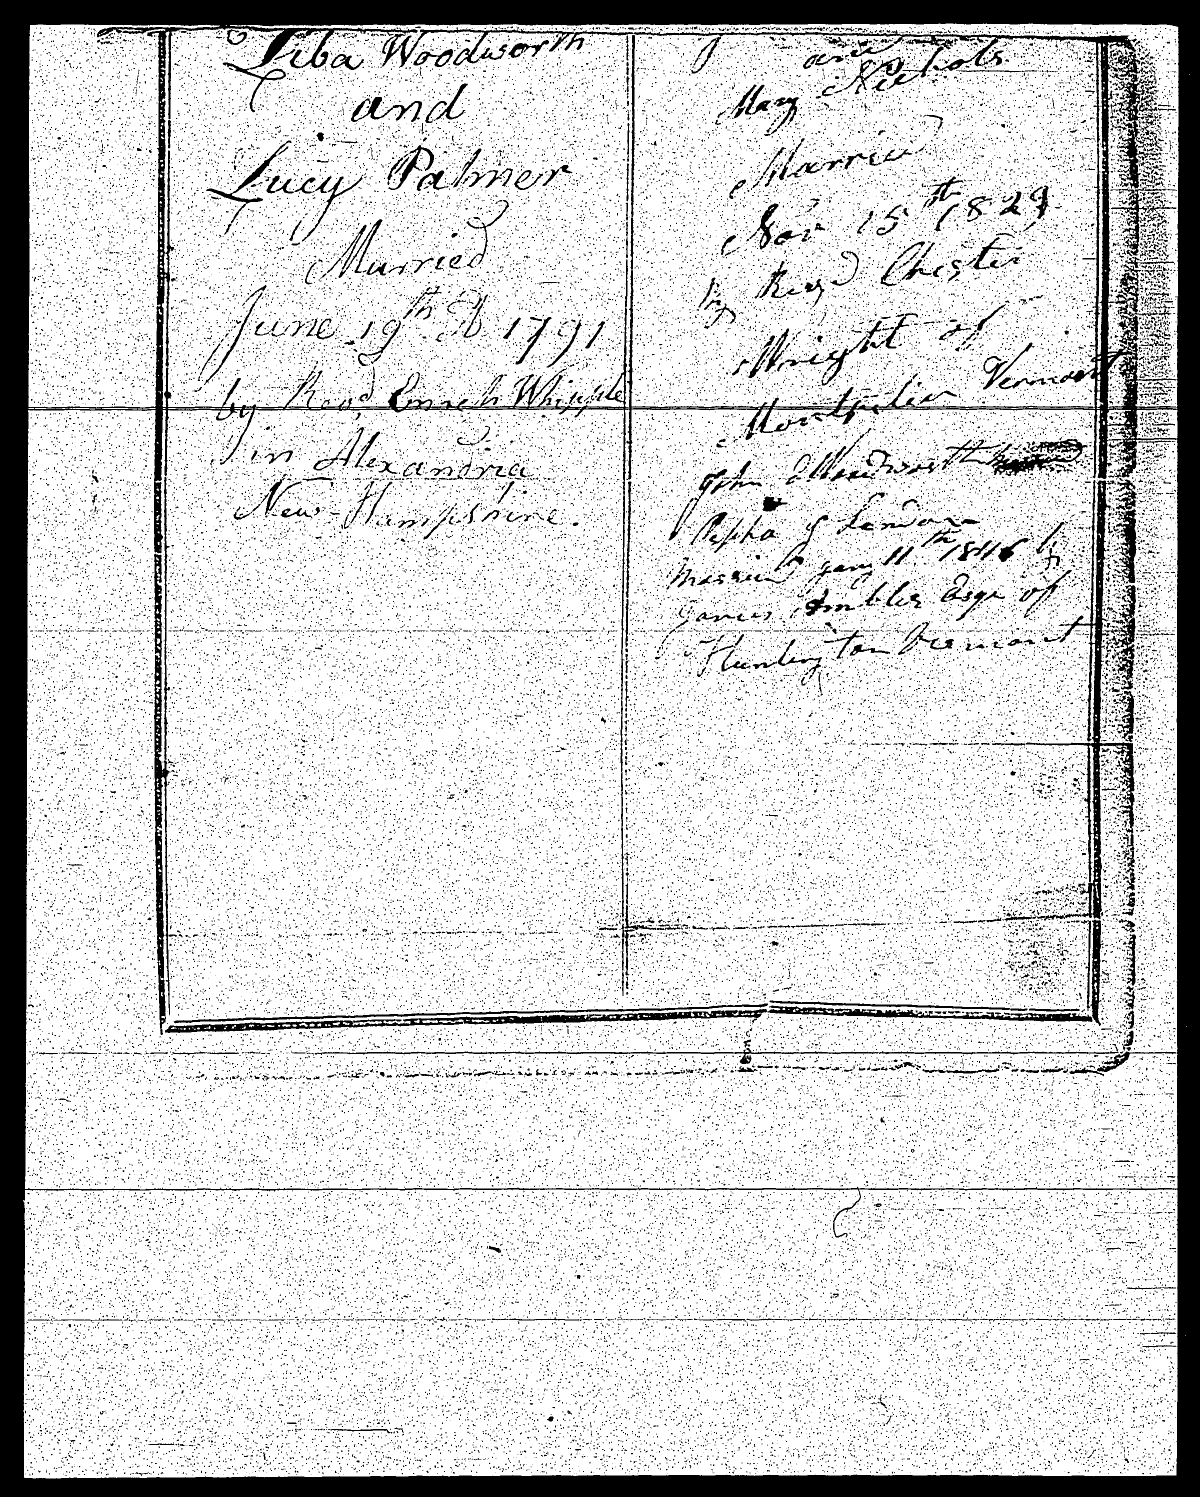 Ziba Woodworth
and
Lucy Palmer
Married
June 19th AD 1791
by Revd Enoch Whipple
in Alexandria
New-Hampshire.
and
Mary Nichols
Married
Nov 15th 1829
by Revd Chester
Wright of
Montpelier Vermont
John Woodworth
married Jany 11th 1846 by
James Ambler Esqr of
Huntington Vermont